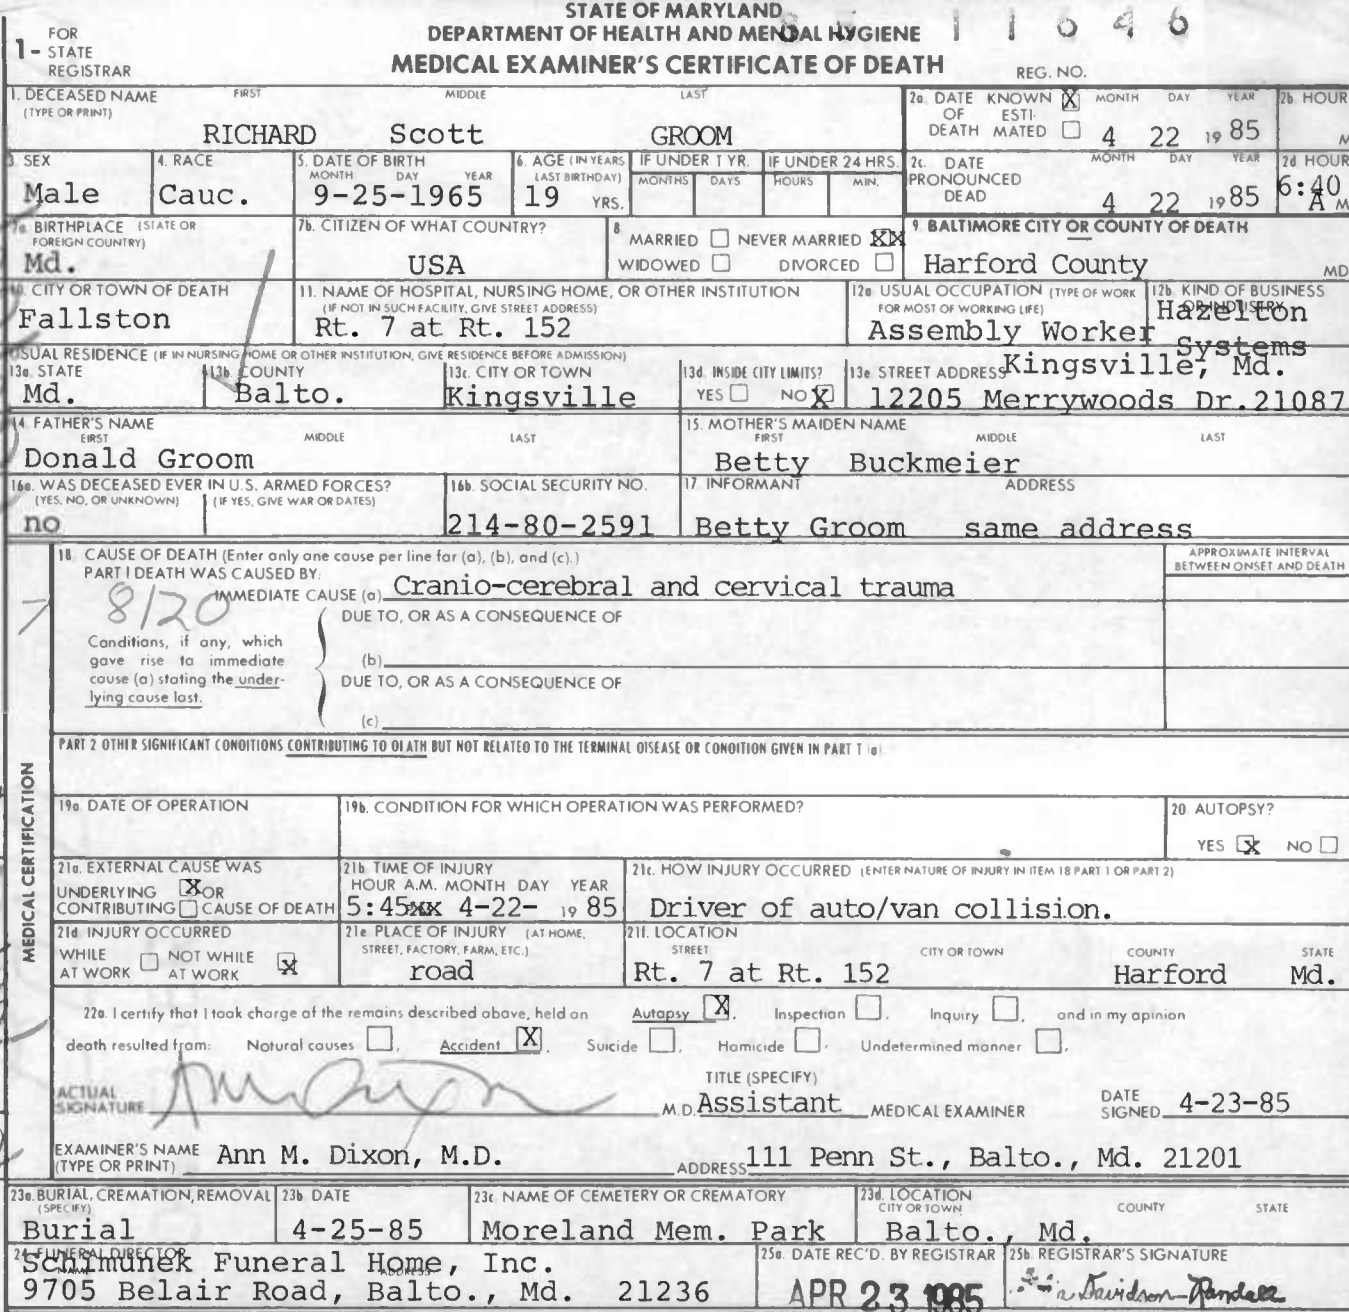 STATE OF MARYLAND
DEPARTMENT OF HEALTH AND MENTAL HYGIENE
MEDICAL EXAMINER'S CERTIFICATE OF DEATH
1- FOR STATE REGISTRAR
11646
REG. NO.
1. DECEASED NAME (TYPE OR PRINT) FIRST MIDDLE LAST
RICHARD Scott GROOM
2a. DATE OF DEATH KNOWN X ESTIMATED MONTH DAY YEAR
4 22 1985
2b HOUR M
3. SEX
Male
4. RACE
Cauc.
5. DATE OF BIRTH MONTH DAY YEAR
9-25-1965
6. AGE (IN YEARS LAST BIRTHDAY)
19 YRS.
IF UNDER 1 YR. MONTHS DAYS
IF UNDER 24 HRS. HOURS MIN.
2c. DATE PRONOUNCED DEAD MONTH DAY YEAR
4 22 1985
2d HOUR
6:40 A M
7a. BIRTHPLACE (STATE OR FOREIGN COUNTRY)
Md.
7b. CITIZEN OF WHAT COUNTRY?
USA
8 MARRIED NEVER MARRIED XX
WIDOWED DIVORCED
9 BALTIMORE CITY OR COUNTY OF DEATH
Harford County MD
10. CITY OR TOWN OF DEATH
Fallston
11. NAME OF HOSPITAL, NURSING HOME, OR OTHER INSTITUTION
(IF NOT IN SUCH FACILITY, GIVE STREET ADDRESS)
Rt. 7 at Rt. 152
12a USUAL OCCUPATION (TYPE OF WORK FOR MOST OF WORKING LIFE)
Assembly Worker
12b. KIND OF BUSINESS OR INDUSTRY
Hazelton Systems
USUAL RESIDENCE (IF IN NURSING HOME OR OTHER INSTITUTION, GIVE RESIDENCE BEFORE ADMISSION)
13a. STATE
Md.
13b. COUNTY
Balto.
13c. CITY OR TOWN
Kingsville
13d. INSIDE CITY LIMITS?
YES NO X
13e STREET ADDRESS Kingsville, Md.
12205 Merrywoods Dr. 21087
14. FATHER'S NAME
FIRST MIDDLE LAST
Donald Groom
15. MOTHER'S MAIDEN NAME
FIRST MIDDLE LAST
Betty Buckmeier
16a. WAS DECEASED EVER IN U.S. ARMED FORCES?
(YES, NO, OR UNKNOWN) (IF YES, GIVE WAR OR DATES)
no
16b. SOCIAL SECURITY NO.
214-80-2591
17 INFORMANT ADDRESS
Betty Groom same address
MEDICAL CERTIFICATION
18. CAUSE OF DEATH (Enter only one cause per line for (a), (b), and (c).)
APPROXIMATE INTERVAL BETWEEN ONSET AND DEATH
PART I DEATH WAS CAUSED BY:
IMMEDIATE CAUSE (a) Cranio-cerebral and cervical trauma
8120
DUE TO, OR AS A CONSEQUENCE OF
Conditions, if any, which gave rise to immediate cause (a) stating the underlying cause last.
(b)
DUE TO, OR AS A CONSEQUENCE OF
(c)
PART 2 OTHER SIGNIFICANT CONDITIONS CONTRIBUTING TO DEATH BUT NOT RELATED TO THE TERMINAL DISEASE OR CONDITION GIVEN IN PART 1 (a)
19a DATE OF OPERATION
19b. CONDITION FOR WHICH OPERATION WAS PERFORMED?
20 AUTOPSY?
YES X NO
21a. EXTERNAL CAUSE WAS
UNDERLYING X OR
CONTRIBUTING CAUSE OF DEATH
21b TIME OF INJURY
HOUR A.M. MONTH DAY YEAR
5:45xx 4-22- 1985
21c. HOW INJURY OCCURRED (ENTER NATURE OF INJURY IN ITEM 18 PART 1 OR PART 2)
Driver of auto/van collision.
21d INJURY OCCURRED
WHILE AT WORK NOT WHILE AT WORK X
21e PLACE OF INJURY (AT HOME, STREET, FACTORY, FARM, ETC.)
road
21f. LOCATION
STREET CITY OR TOWN COUNTY STATE
Rt. 7 at Rt. 152 Harford Md.
22a. I certify that I took charge of the remains described above, held an Autopsy X, Inspection, Inquiry, and in my opinion
death resulted from: Natural causes, Accident X, Suicide, Homicide, Undetermined manner,
ACTUAL SIGNATURE
TITLE (SPECIFY)
M.D. Assistant MEDICAL EXAMINER
DATE SIGNED 4-23-85
EXAMINER'S NAME (TYPE OR PRINT) Ann M. Dixon, M.D.
ADDRESS 111 Penn St., Balto., Md. 21201
23a. BURIAL, CREMATION, REMOVAL (SPECIFY)
Burial
23b DATE
4-25-85
23c NAME OF CEMETERY OR CREMATORY
Moreland Mem. Park
23d. LOCATION
CITY OR TOWN COUNTY STATE
Balto., Md.
24 FUNERAL DIRECTOR NAME ADDRESS
Schimunek Funeral Home, Inc.
9705 Belair Road, Balto., Md. 21236
25a. DATE REC'D. BY REGISTRAR
APR 23 1985
25b. REGISTRAR'S SIGNATURE
Davidson-Randall